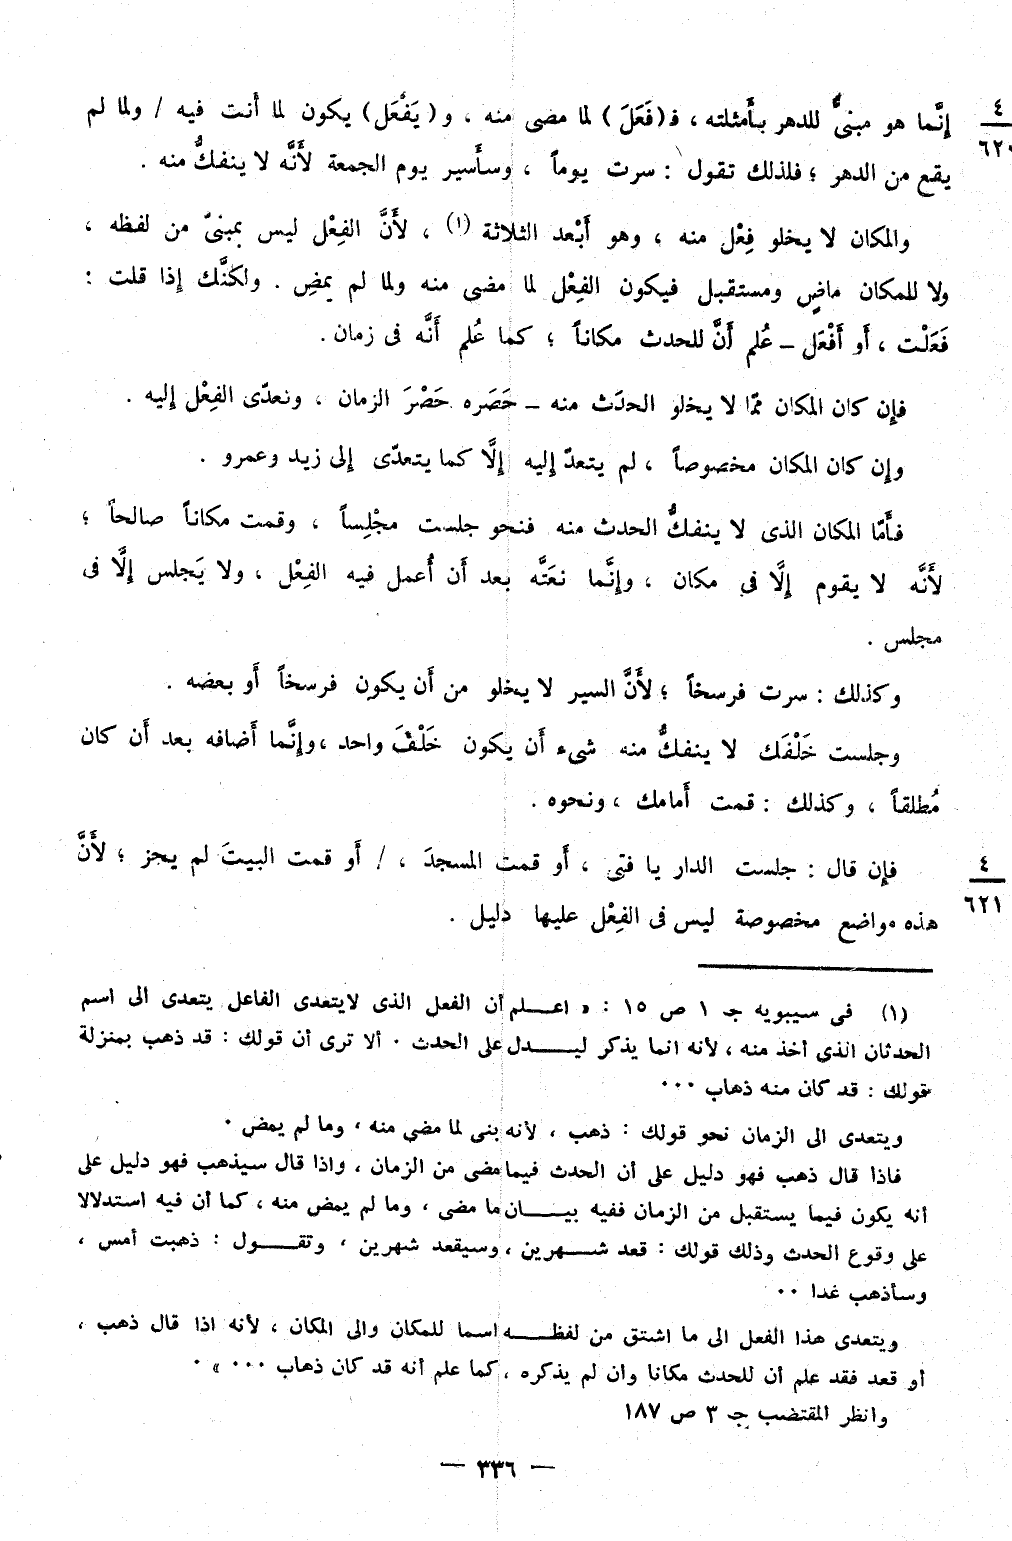 إنَّما هو مبنىٌّ للدهر بأَمثلته ، فـ(فَعَلَ) لما مضى منه ، و ( يَفْعَل) يكون لما أَنت فيه / ولما لم
٤
٦٢٠
يقع من الدهر ؛ فلذلك تقول : سرت يوماً ، وسأَسير يوم الجمعة لأَنَّه لا ينفكُّ منه .
والمكان لا يخلو فِعْل منه ، وهو أَبْعد الثلاثة (١) ، لأَنَّ الفِعْل ليس بمبنىّ من لفظه ،
ولا للمكان ماضٍ ومستقبل فيكون الفِعْل لما مضى منه ولما لم يمضِ . ولكنَّك إذا قلت :
فَعَلْت ، أَو أَفْعَل – عُلم أَنَّ للحدث مكاناً ؛ كما عُلم أَنَّه فى زمان .
فإن كان المكان ممّا لا يخلو الحدَث منه – حَصَره حَصْرَ الزمان ، ونعدّى الفِعْل إليه .
وإن كان المكان مخصوصاً ، لم يتعدّ إليه إلَّا كما يتعدّى إلى زيد وعمرو .
فأَمّا المكان الذى لا ينفكُّ الحدث منه فنحو جلست مجْلِساً ، وقمت مكاناً صالحاً ؛
لأَنَّه لا يقوم إلَّا فى مكان ، وإنَّما نعَتَّه بعد أَن أُعمل فيه الفِعْل ، ولا يَجلس إلَّا فى
مجلس .
وكذلك : سرت فرسخاً ؛ لأَنَّ السير لا يخلو من أَن يكون فرسخاً أَو بعضه .
وجلست خَلْفَك لا ينفكُّ منه شىء أَن يكون خَلْفَ واحد ، وإنَّما أَضافه بعد أَن كان
مُطلقاً ، وكذلك : قمت أَمامك ، ونحوه .
فإن قال : جلست الدار يا فتى ، أَو قمت المسجدَ ، / أَو قمت البيتَ لم يجز ؛ لأَنَّ
٤
٦٢١
هذه مواضع مخصوصة ليس فى الفِعْل عليها دليل .
(١) فى سيبويه جـ ١ ص ١٥ : « اعــلم أن الفعل الذى لايتعدى الفاعل يتعدى الى اسم
الحدثان الذى أخذ منه ، لأنه انما يذكر ليــدل على الحدث ٠ ألا ترى أن قولك : قد ذهب بمنزلة
قولك : قد كان منه ذهاب ٠٠٠
ويتعدى الى الزمان نحو قولك : ذهب ، لأنه بنى لما مضى منه ، وما لم يمض ٠
فاذا قال ذهب فهو دليل على أن الحدث فيما مضى من الزمان ، واذا قال سيذهب فهو دليل على
أنه يكون فيما يستقبل من الزمان ففيه بيــان ما مضى ، وما لم يمض منه ، كما أن فيه استدلالا
على وقوع الحدث وذلك قولك : قعد شــهرين ، وسيقعد شهرين ، وتقــول : ذهبت أمس ،
وسأذهب غدا ٠٠
ويتعدى هذا الفعل الى ما اشتق من لفظــه اسما للمكان والى المكان ، لأنه اذا قال ذهب ،
أو قعد فقد علم أن للحدث مكانا وان لم يذكره ، كما علم أنه قد كان ذهاب ٠٠٠ » ٠
وانظر المقتضب جـ ٣ ص ١٨٧
— ٣٣٦ —